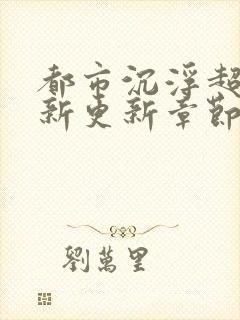 都市沉浮超
新更新章節
劉萬里